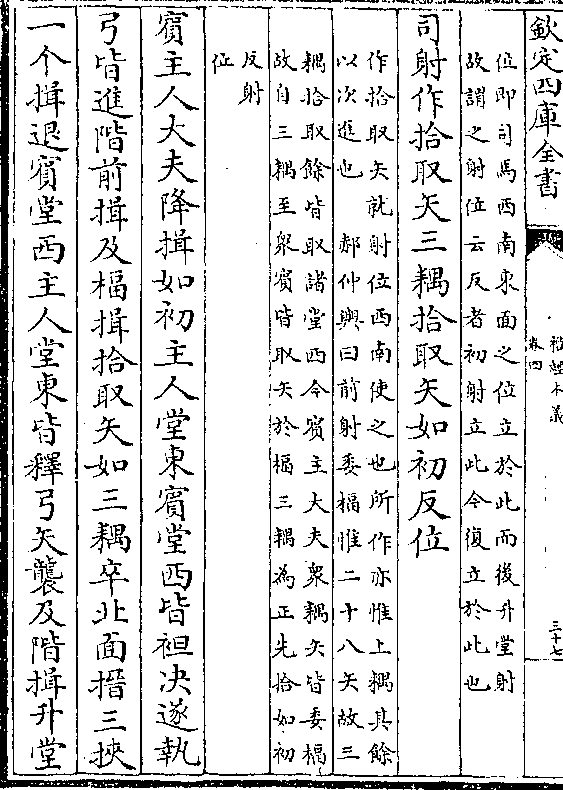 欽定四庫全書
儀禮本義
卷四
三十七
位即司馬西南東面之位立於此而後升堂射
故謂之射位云反者初射立此今復立於此也
司射作拾取矢三耦拾取矢如初反位
作拾取矢就射位西南使之也所作亦惟上耦其餘
以次進也　郝仲輿曰前射委楅惟二十八矢故三
耦拾取餘皆取諸堂西今賓主大夫衆耦矢皆委楅
故自三耦至衆賓皆取矢於楅三耦為正先拾如初
反射
位
賓主人大夫降揖如初主人堂東賓堂西皆袒决遂執
弓皆進階前揖及楅揖拾取矢如三耦卒北面搢三挾
一个揖退賓堂西主人堂東皆釋弓矢襲及階揖升堂